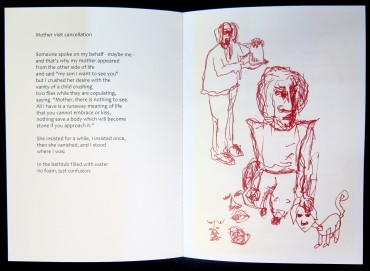 Mother visit cancellation
Someone spoke on my behalf - maybe me -
and that's why my mother appeared
from the other side of life
and said "my son I want to see you"
but I crushed her desire with the
vanity of a child crushing
two flies while they are copulating,
saying: "Mother, there is nothing to see.
All I have is a runaway meaning of life
that you cannot embrace or kiss,
nothing save a body which will become
stone if you approach it."
She insisted for a while, I insisted once,
then she vanished, and I stood
where I was:
in the bathtub filled with water
no foam, just confusion.